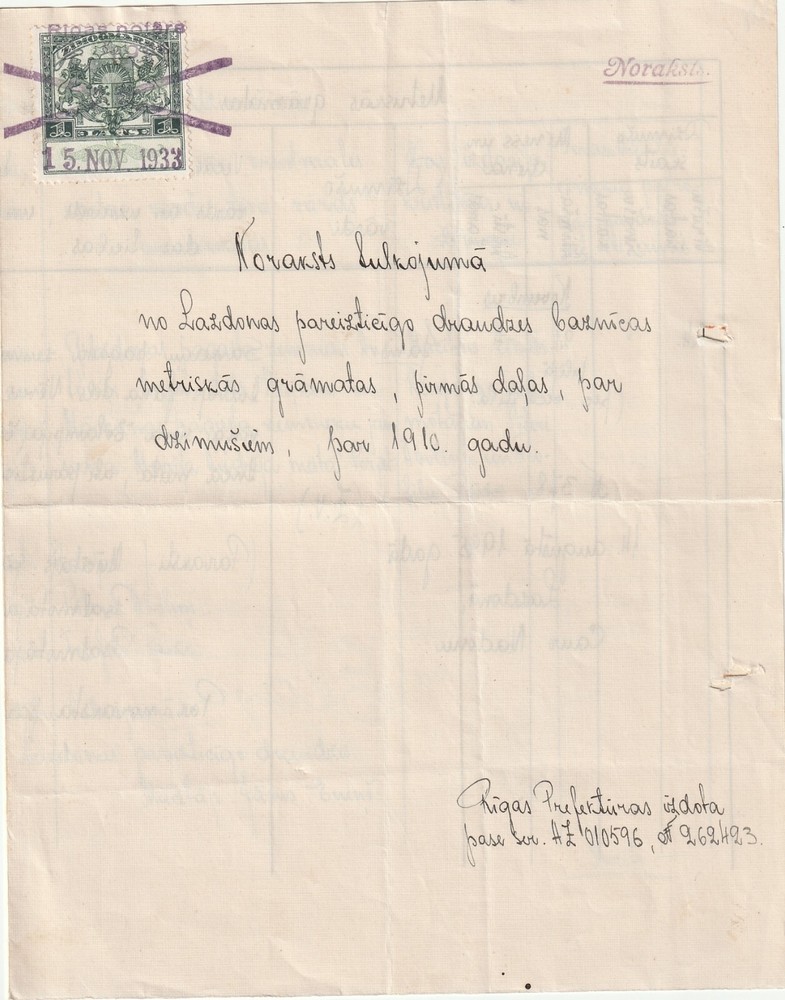 Rīgas notārs
ZĪMOGMARKA
1 LATS 1
15. NOV. 1933
Noraksts.
Noraksts tulkojumā
no Lazdonas pareizticīgo draudzes baznīcas
metriskās grāmatas, pirmās daļas, par
dzimušiem, par 1910. gadu.
Rīgas Prefektūras izdota
pase ser. AZ 010596, № 262423.